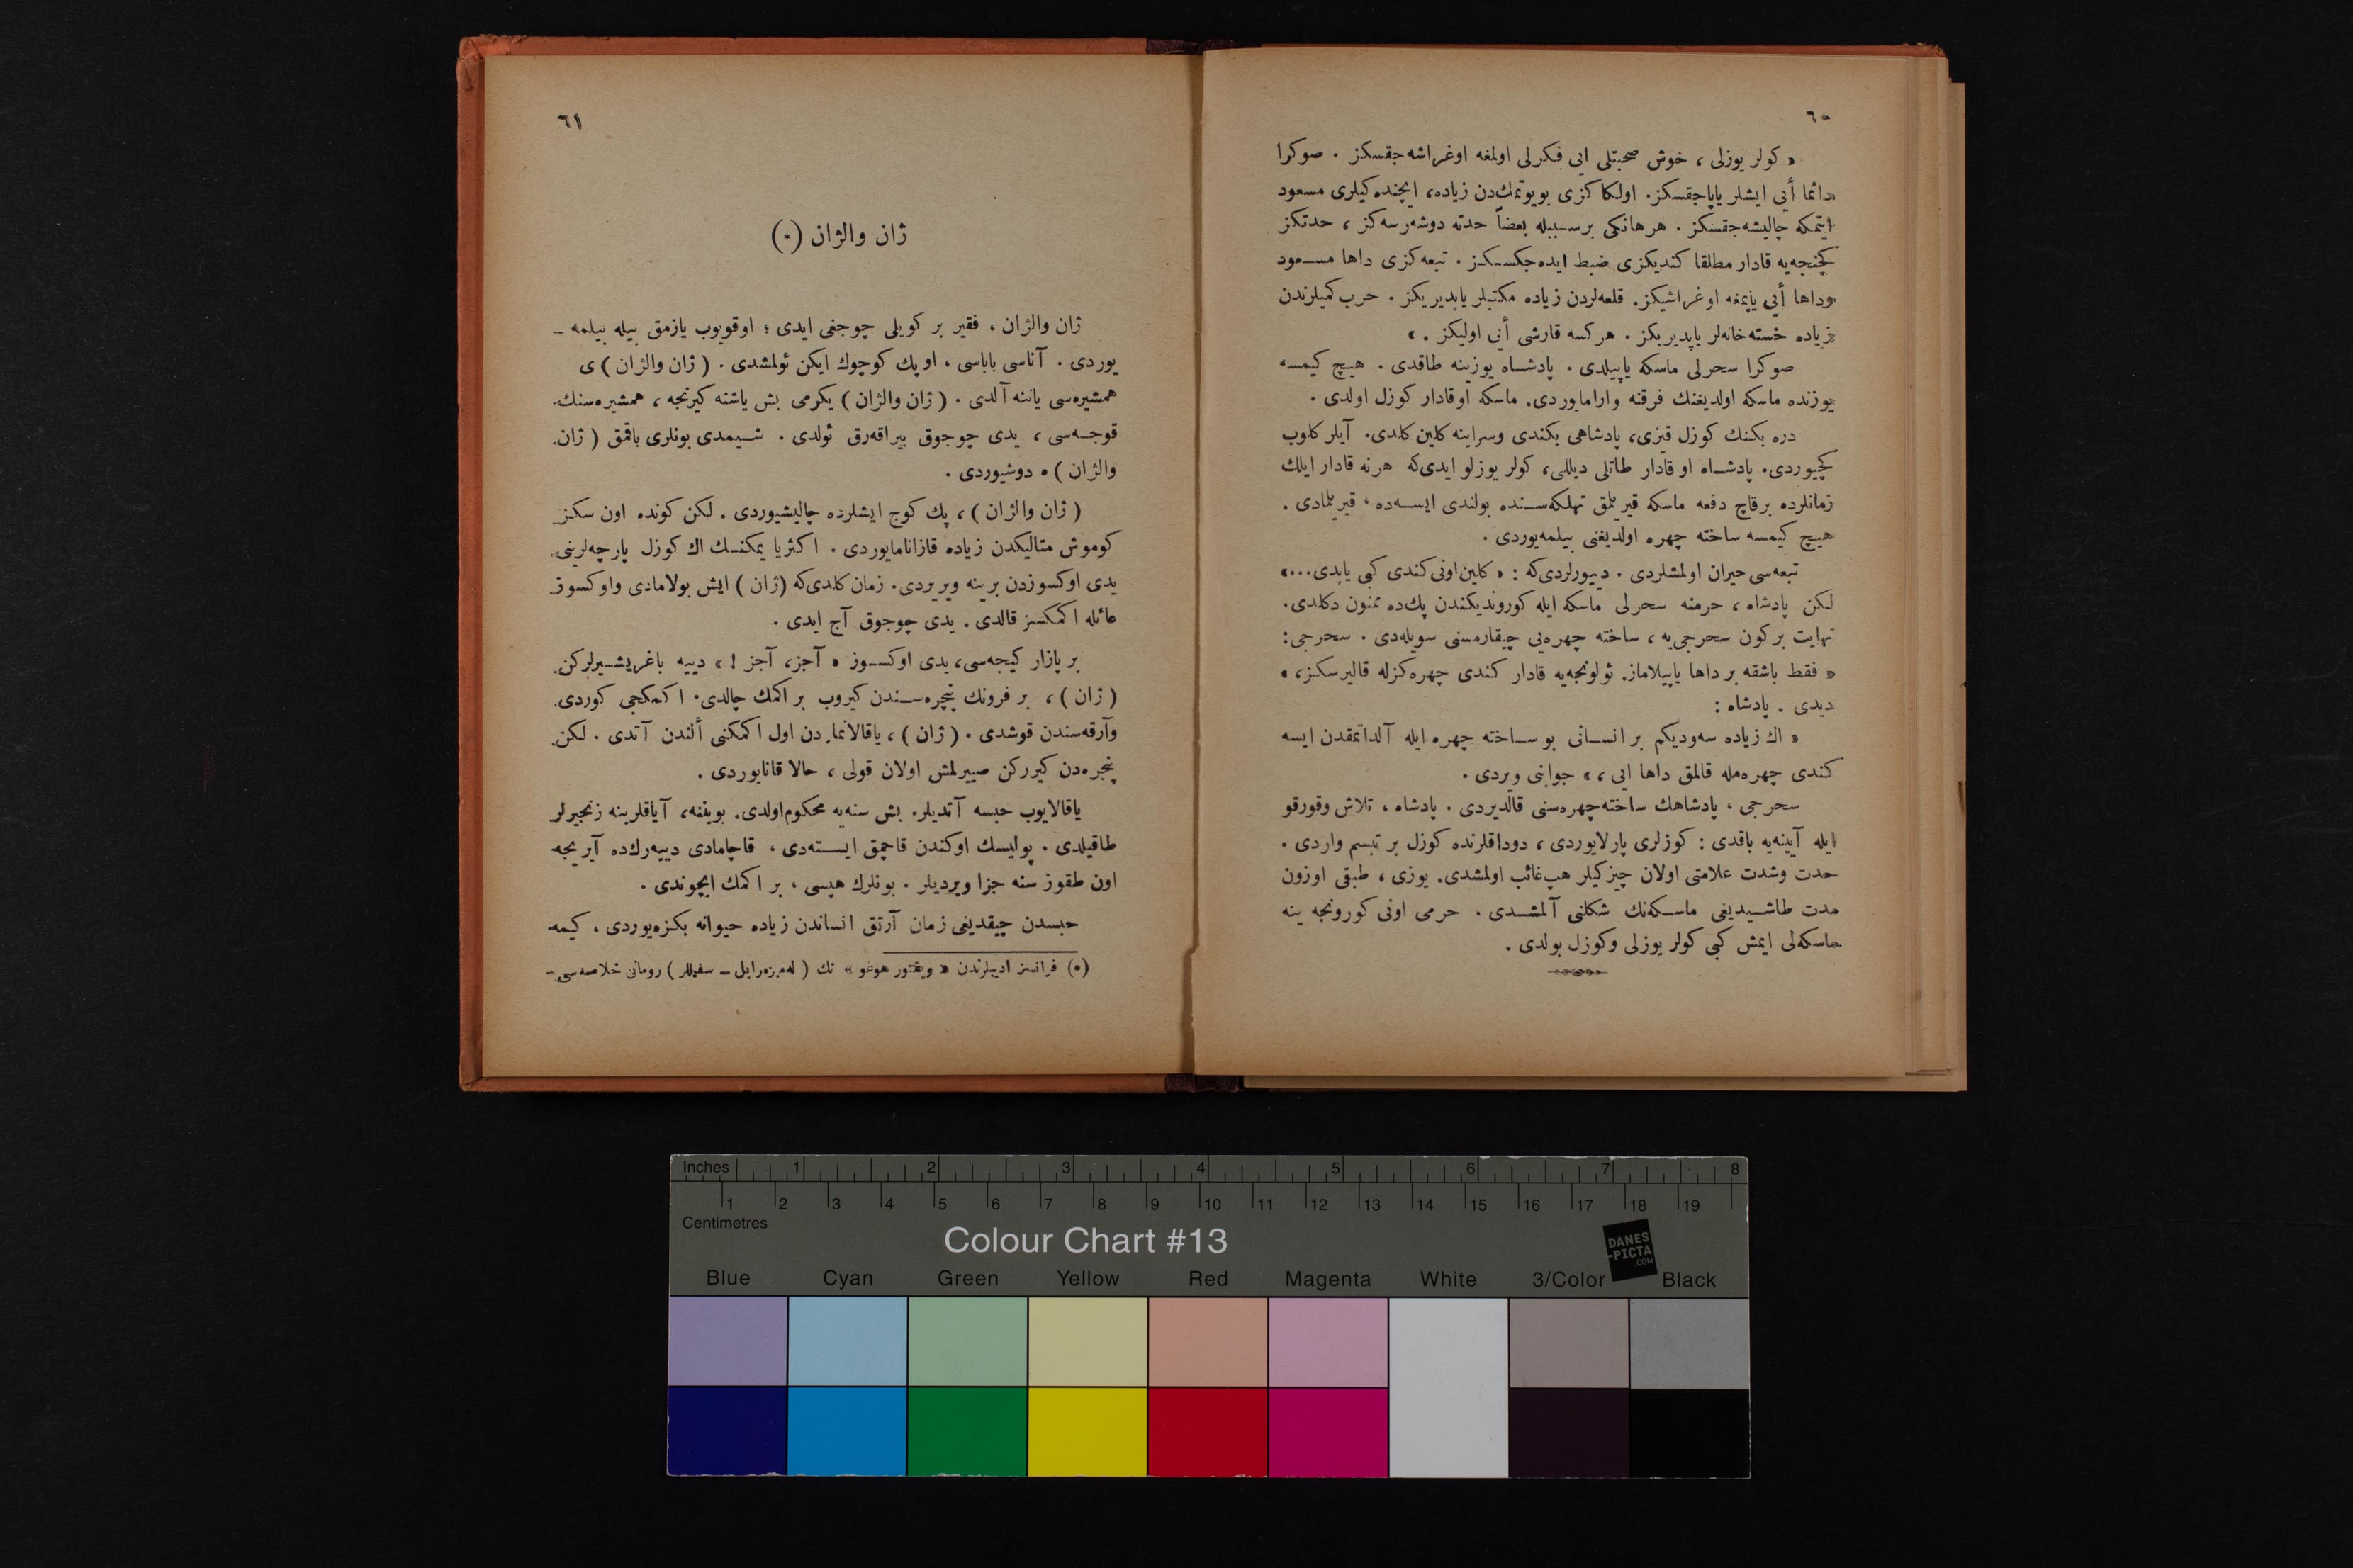 ٦٠
« كولر يوزلى ، خوش صحبتلى ايى فكرلى اولمغه اوغراشه جقسكز . صوكرا
دائما أيى ايشلر ياپاجقسكز. اولكا كزى بويوتمك‌دن زياده، ايچنده كيلرى مسعود
ايتمكه چاليشه جقسكز . هر هانكى بر سببله بعضاً حدته دوشه‌رسه كز ، حدتكز
كچنجه‌يه قادار مطلقا كنديكزى ضبط ايده جكسكز . تبعه كزى داها مسعود
وداها أيى ياپمغه اوغراشيكز. قلعه‌لردن زياده مكتبلر ياپديريكز . حرب كميلرندن
زياده خسته خانه‌لر ياپديريكز . هر كسه قارشى أيى اوليكز . »
صوكرا سحرلى ماسكه ياپيلدى . پادشاه يوزينه طاقدى . هيچ كيمسه
يوزنده ماسكه اولديغنك فرقنه وارامايوردى. ماسكه اوقادار كوزل اولدى .
دره بكنك كوزل قيزى، پادشاهى بكندى وسراينه كلين كلدى. آيلر كلوب
كچيوردى. پادشاه او قادار طاتلى ديللى، كولر يوزلو ايدى‌كه هرنه قادار ايلك
زمانلرده برقاچ دفعه ماسكه قيريلمق تهلكه‌سنده بولندى ايسه‌ده ، قيريلمادى .
هيچ كيمسه ساخته چهره اولديغنى بيلمه‌يوردى .
تبعه‌سى حيران اولمشلردى . دييورلردى‌كه : « كلين اونى كندى كبى ياپدى...»
لكن پادشاه ، حرمنه سحرلى ماسكه ايله كورونديكندن پك‌ده ممنون دكلدى.
نهايت بر كون سحرجى‌يه ، ساخته چهره‌يى چيقارمسنى سويله‌دى . سحرجى:
« فقط باشقه بر داها ياپيلاماز. ئولونجه‌يه قادار كندى چهره كزله قاليرسكز، »
ديدى . پادشاه :
« اك زياده سه‌وديكم بر انسانى بو ساخته چهره ايله آلداتمقدن ايسه
كندى چهره‌مله قالمق داها ايى ، » جوابنى ويردى .
سحرجى ، پادشاهك ساخته چهره‌سنى قالديردى . پادشاه ، تلاش وقورقو
ايله آيينه‌يه باقدى : كوزلرى پارلايوردى ، دوداقلرنده كوزل بر تبسم واردى .
حدت وشدت علامتى اولان چيزكيلر هپ غائب اولمشدى. يوزى ، طبقى اوزون
مدت طاشيديغى ماسكه‌نك شكلنى آلمشدى . حرمى اونى كورونجه ينه
ماسكه‌لى ايمش كبى كولر يوزلى وكوزل بولدى .
٦١
ژان والژان (*)
ژان والژان ، فقير بر كويلى چوجغى ايدى ؛ اوقويوب يازمق بيله بيلمه -
يوردى . آناسى باباسى ، او پك كوچوك ايكن ئولمشدى . ( ژان والژان ) ى
همشيره‌سى ياننه آلدى . ( ژان والژان ) يكرمى بش ياشنه كيرنجه ، همشيره‌سنك
قوجه‌سى ، يدى چوجوق بيراقه‌رق ئولدى . شيمدى بونلرى باقمق ( ژان
والژان ) ه دوشيوردى .
( ژان والژان ) ، پك كوج ايشلرده چاليشيوردى . لكن كونده اون سكز
كوموش متاليكدن زياده قازانامايوردى . اكثريا يمكنك اك كوزل پارچه‌لرينى
يدى اوكسوزدن برينه ويريردى. زمان كلدى‌كه (ژان ) ايش بولامادى واوكسوز
عائله اكمكسز قالدى . يدى چوجوق آج ايدى .
بر پازار كيجه‌سى، يدى اوكسوز « آجز، آجز ! » دييه باغريشيرلركن
( ژان ) ، بر فرونك پنجره‌سندن كيروب بر اكمك چالدى. اكمكجى كوردى
وآرقه‌سندن قوشدى . ( ژان ) ، ياقالانمادن اول اكمكنى ألندن آتدى . لكن
پنجره‌دن كيرركن صييرلمش اولان قولى ، حالا قانايوردى .
ياقالايوب حبسه آتديلر. بش سنه‌يه محكوم اولدى. بويننه، آياقلرينه زنجيرلر
طاقيلدى . پوليسك اوكندن قاچمق ايسته‌دى ، قاچامادى دييه‌رك‌ده آيريجه
اون طقوز سنه جزا ويرديلر . بونلرك هپسى ، بر اكمك ايچوندى .
حبسدن چيقديغى زمان آرتق انساندن زياده حيوانه بكزه‌يوردى ، كيمه
(*) فرانسز اديبلرندن « ويقتور هوغو » نك ( له‌ميزه‌رابل - سفيللر ) رومانى خلاصه‌سى
Inches 1 2 3 4 5 6 7 8
1 2 3 4 5 6 7 8 9 10 11 12 13 14 15 16 17 18 19
Centimetres
Colour Chart #13
DANES
-PICTA
.COM
Blue Cyan Green Yellow Red Magenta White 3/Color Black